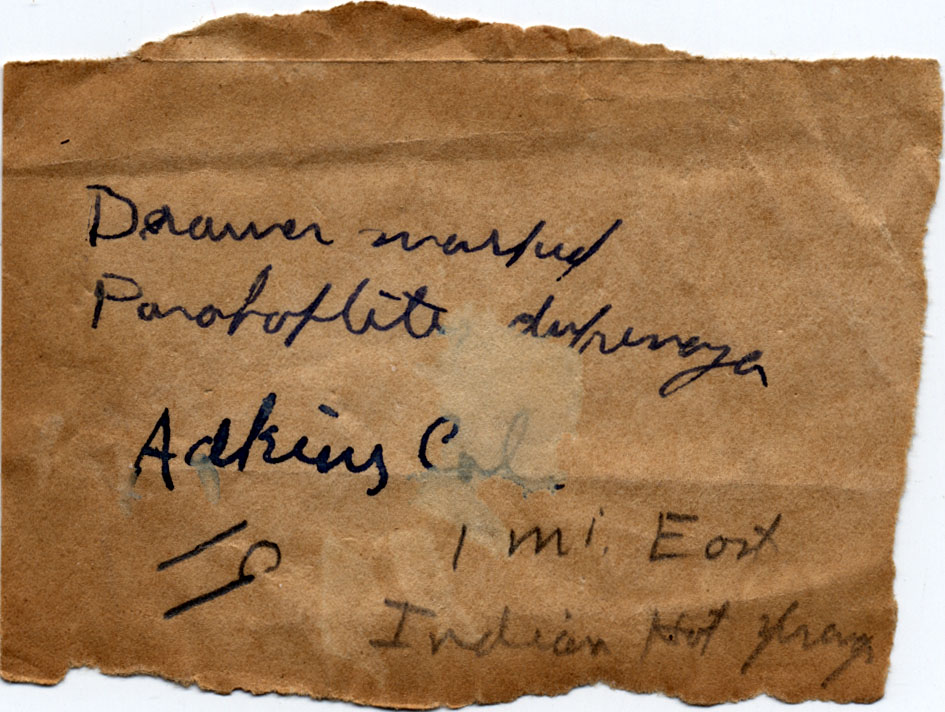 Drawer marked
Parahoplites dufrenoya
Adkins Col.
1 mi. East
Indian Hot